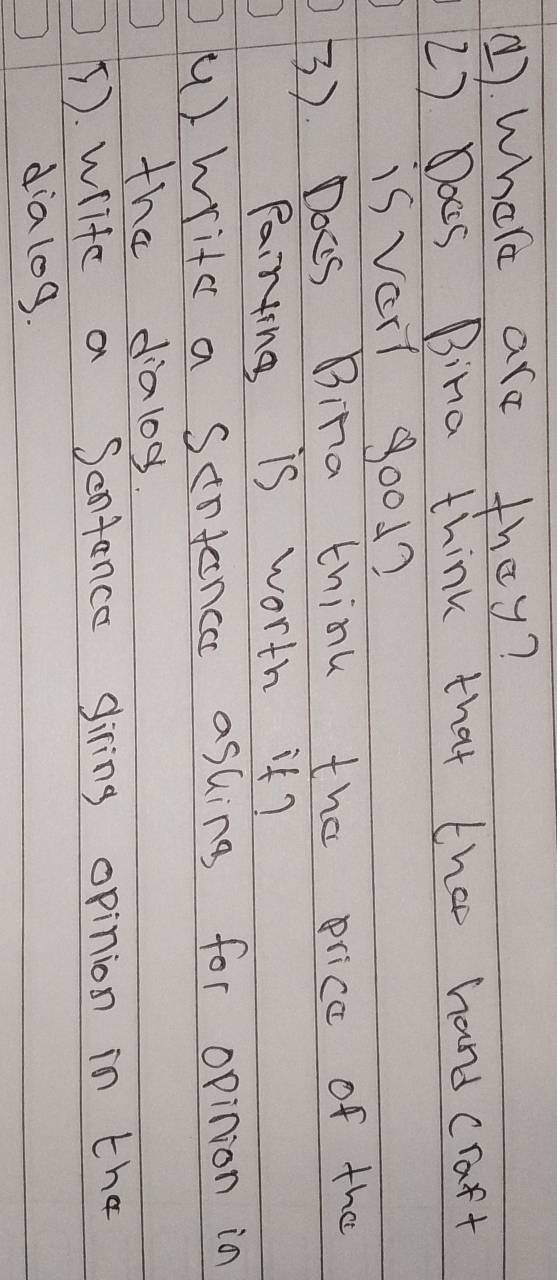 1). Where are they?
2) Does Bima think that the handcraft
is very good?
3). Does Bima think the price of the
Painting is worth it?
4). Write a sentence asking for opinion in
the dialog.
5). Write a Sentence giving opinion in the
dialog.